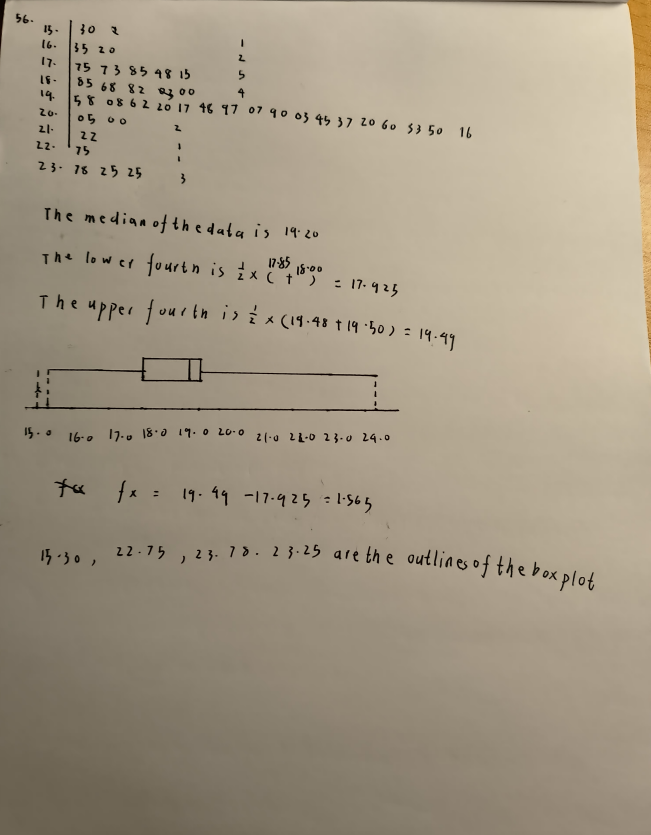 56.
15. 30 2 1
16. 35 20 2
17. 75 73 85 48 15 5
18. 85 68 82 03 00 4
19. 58 08 62 20 17 48 97 07 90 03 45 37 20 60 33 50 16
20. 05 00 2
21. 22 1
22. 75 1
23. 78 25 25 3
The median of the data is 19.20
The lower fourth is 1/2 × (17.85 + 18.00) = 17.925
The upper fourth is 1/2 × (19.48 + 19.50) = 19.49
15.0 16.0 17.0 18.0 19.0 20.0 21.0 22.0 23.0 24.0
fx = 19.49 - 17.925 = 1.565
15.30, 22.75, 23.78. 23.25 are the outlines of the box plot